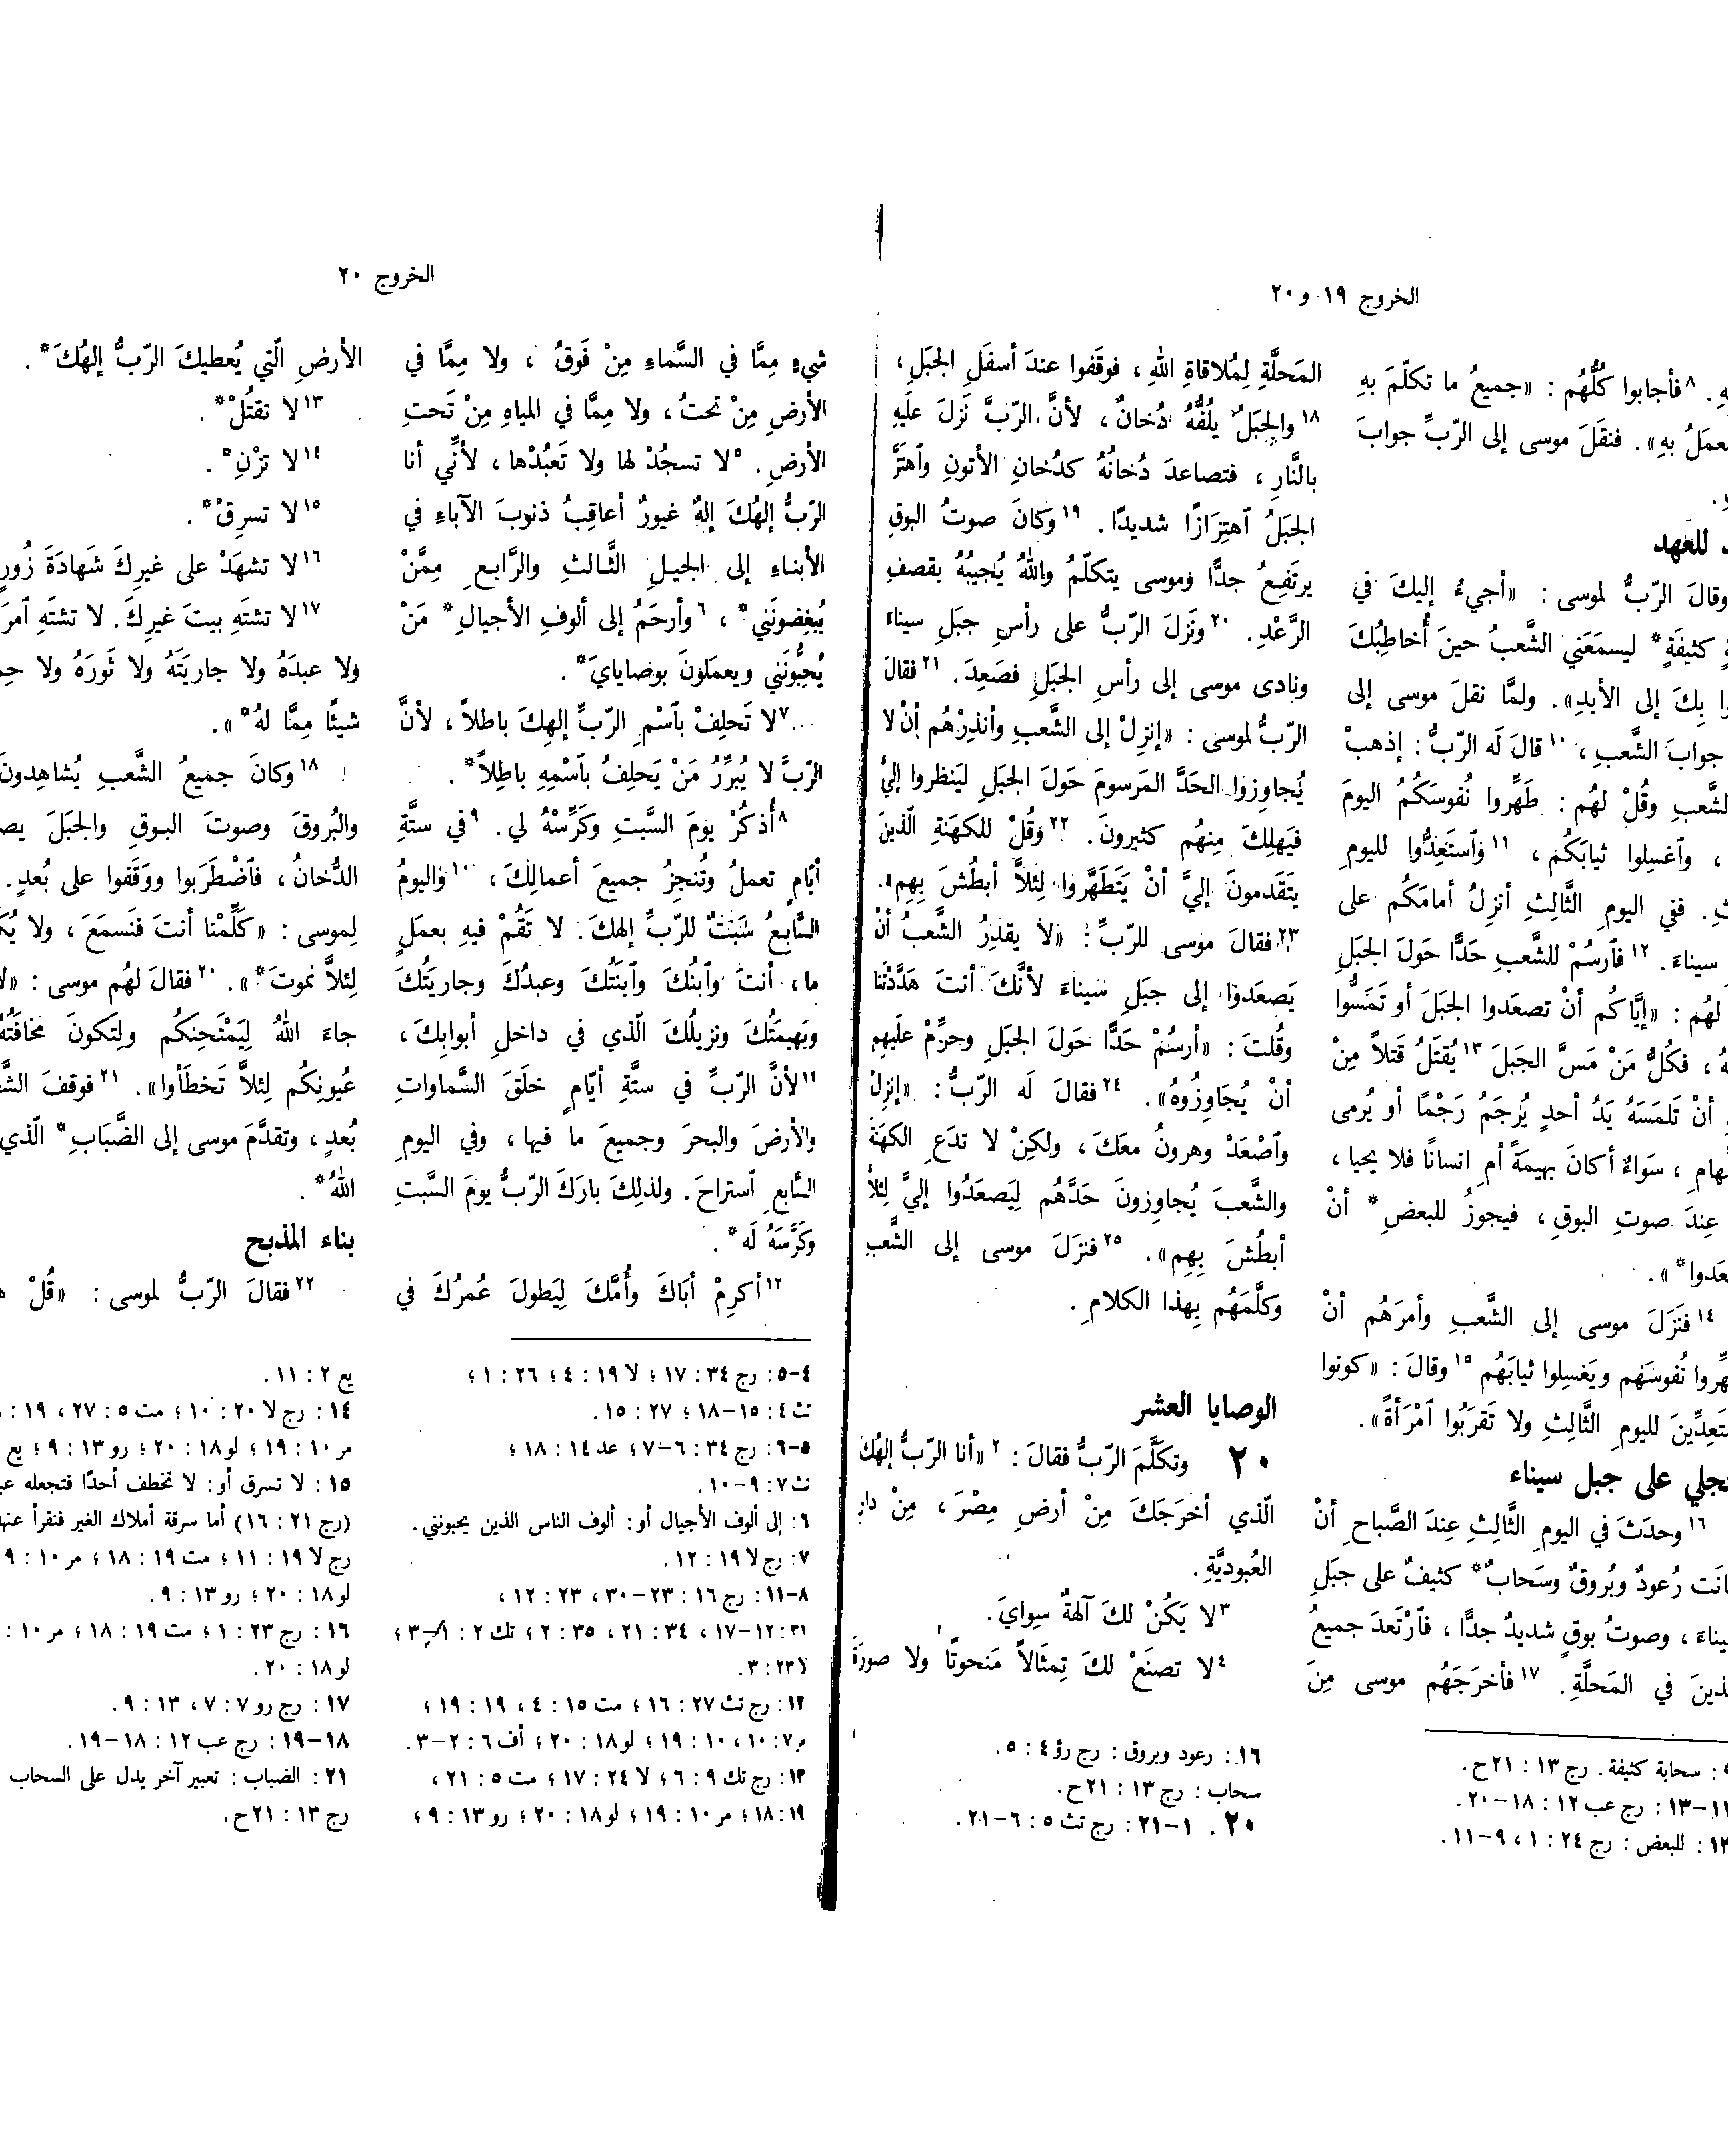 الخروج ١٩ و ٢٠
٨ فأجابوا كُلُّهُم : «جميعُ ما تكلّمَ بهِ
بهِ». فنقَلَ موسى إلى الرّبِّ جوابَ
للعهد
وقالَ الرّبُّ لموسى : «أجيءُ إليكَ في
كثيفَةٍ* ليسمَعَني الشَّعبُ حينَ أُخاطِبُكَ
بِكَ إلى الأبدِ». ولمَّا نقلَ موسى إلى
جوابَ الشَّعبِ ، ١٠ قالَ لَه الرّبُّ : إذهبْ
وقُلْ لهُم : طَهِّروا نُفوسَكُمُ اليومَ
، وٱغسِلوا ثيابَكُم ، ١١ وٱستَعِدُّوا لليومِ
. ففي اليومِ الثَّالِثِ أنزِلُ أمامَكُم على
سيناءَ. ١٢ فٱرسُمْ للشَّعبِ حَدًّا حَولَ الجبَلِ
لهُم : «إيَّاكُم أنْ تصعَدوا الجبَلَ أو تَمَسُّوا
، فكُلُّ مَنْ مَسَّ الجبَلَ ١٣ يُقتَلُ قَتلاً مِنْ
أنْ تَلمَسَهُ يَدُ أحدٍ يُرجَمُ رَجْمًا أو يُرمى
، سَواءٌ أكانَ بهيمَةً أمِ انسانًا فلا يحيا ،
عِندَ صوتِ البوقِ ، فيجوزُ للبعضِ* أنْ
١٤ فنَزَلَ موسى إلى الشَّعبِ وأمرَهُم أنْ
نُفوسَهُم ويَغسِلوا ثيابَهُم ١٥ وقالَ : «كونوا
لليومِ الثَّالِثِ ولا تَقرَبُوا ٱمْرَأةً».
على جبل سيناء
١٦ وحدَثَ في اليومِ الثَّالِثِ عِندَ الصَّباحِ أنْ
رُعودٌ وبُروقٌ وسَحابٌ* كثيفٌ على جبَلِ
، وصوتُ بوقٍ شديدٌ جدًّا ، فٱرْتَعدَ جميعُ
في المَحلَّةِ. ١٧ فأخرَجَهُم موسى مِنَ
: سحابة كثيفة. رج ١٣ : ٢١ح.
١٣ : رج عب ١٢ : ١٨–٢٠.
: للبعض : رج ٢٤ : ١، ٩–١١.
المَحلَّةِ لِمُلاقاةِ اللهِ ، فوقَفوا عندَ أسفَلِ الجبَلِ ،
١٨ والجبَلُ يلُفُّهُ دُخانٌ ، لأنَّ الرّبَّ نَزلَ علَيهِ
بالنَّارِ ، فتصاعدَ دُخانُهُ كدُخانِ الأتونِ وٱهتَزَّ
الجبَلُ ٱهتِزَازًا شديدًا. ١٩ وكانَ صوتُ البوقِ
يرتَفِعُ جدًّا وموسى يتكلّمُ واللهُ يُجيبُهُ بقصفِ
الرَّعْدِ. ٢٠ ونَزلَ الرّبُّ على رأسِ جبَلِ سيناءَ
ونادى موسى إلى رأسِ الجبَلِ فصَعِدَ. ٢١ فقالَ
الرّبُّ لموسى : «إنزِلْ إلى الشَّعبِ وأنذِرْهُم أنْ لا
يُجاوِزوا الحدَّ المَرسومَ حَولَ الجبَلِ ليَنظروا إليَّ
فيَهلِكَ مِنهُم كثيرونَ. ٢٢ وقُلْ للكهَنةِ الّذينَ
يتَقَدمونَ إليَّ أنْ يَتَطَهَّروا لِئلاَّ أبطُشَ بِهِم».
٢٣ فقالَ موسى للرّبِّ : «لا يقدِرُ الشَّعبُ أنْ
يَصعَدوا إلى جبَلِ سيناءَ لأنَّكَ أنتَ هَدَّدْتَنا
وقُلتَ : «أرسُمْ حَدًّا حَولَ الجبَلِ وحرِّمْ علَيهِم
أنْ يُجَاوِزُوهُ». ٢٤ فقالَ لَه الرّبُّ : «إنزِلْ
وٱصْعَدْ وهرونُ معَكَ ، ولكِنْ لا تدَعِ الكهَنةَ
والشَّعبَ يُجاوِزونَ حَدَّهُم لِيَصعَدُوا إليَّ لِئلاَّ
أبطُشَ بِهِم». ٢٥ فنزَلَ موسى إلى الشَّعبِ
وكلَّمَهُم بِهذا الكلامِ.
الوصايا العشر
٢٠ وتكَلَّمَ الرّبُّ فقالَ : ٢ «أنا الرّبُّ إلهُكَ
الّذي أخرَجَكَ مِنْ أرضِ مِصْرَ ، مِنْ دارِ
العُبوديَّةِ.
٣ لا يَكُنْ لكَ آلهةٌ سِوايَ.
٤ لا تصنَعْ لكَ تِمثَالاً مَنحوتًا ولا صورَةَ
١٦: رعود وبروق : رج رؤ ٤ : ٥.
سحاب : رج ١٣ : ٢١ح.
٢٠. ١–٢١: رج تث ٥ : ٦–٢١.
الخروج ٢٠
شيءٍ مِمَّا في السَّماءِ مِنْ فَوقُ ، ولا مِمَّا في
الأرضِ مِنْ تحتُ ، ولا مِمَّا في المياهِ مِنْ تَحتِ
الأرضِ. ٥ لا تسجُدْ لها ولا تَعبُدْها ، لأنِّي أنا
الرّبُّ إلهُكَ إلهٌ غيورٌ أعاقِبُ ذنوبَ الآباءِ في
الأبناءِ إلى الجيلِ الثَّالثِ والرَّابعِ مِمَّنْ
يُبغِضونَني* ، ٦ وأرحَمُ إلى ألوفِ الأجيالِ* مَنْ
يُحِبُّونَني ويعمَلونَ بوصَايايَ*.
٧ لا تَحلِفْ بٱسْمِ الرّبِّ إلهِكَ باطلاً ، لأنَّ
الرّبَّ لا يُبرِّرُ مَنْ يَحلِفُ بٱسْمِهِ باطِلاً*.
٨ أُذكُرْ يومَ السَّبتِ وكَرِّسْهُ لي. ٩ في ستَّةِ
أيّامٍ تعملُ وتُنجِزُ جميعَ أعمالِكَ ، ١٠ واليومُ
السَّابعُ سَبتٌ للرّبِّ إلهكَ. لا تَقُمْ فيهِ بعملٍ
ما ، أنتَ وٱبنُكَ وٱبنَتُكَ وعبدُكَ وجاريَتُكَ
وبَهيمَتُكَ ونزيلُكَ الّذي في داخلِ أبوابِكَ ،
١١ لأنَّ الرّبَّ في ستَّةِ أيّامٍ خلَقَ السَّماواتِ
والأرضَ والبحرَ وجميعَ ما فيها ، وفي اليومِ
السَّابعِ ٱستراحَ. ولذلِكَ بارَكَ الرّبُّ يومَ السَّبتِ
وكَرَّسَهُ لَه*.
١٢ أكرِمْ أبَاكَ وأُمَّكَ لِيَطولَ عُمرُكَ في
٤–٥: رج ٣٤ : ١٧؛ لا ١٩ : ٤؛ ٢٦ : ١؛
تث ٤ : ١٥–١٨؛ ٢٧ : ١٥.
٥–٦: رج ٣٤ : ٦–٧؛ عد ١٤ : ١٨؛
تث ٧ : ٩–١٠.
٦: إلى ألوف الأجيال أو: ألوف الناس الذين يحبونني.
٧: رج لا ١٩ : ١٢.
٨–١١: رج ١٦ : ٢٣–٣٠، ٢٣ : ١٢،
٣١ : ١٢–١٧، ٣٤ : ٢١، ٣٥ : ٢؛ تك ٢ : ١–٣؛
لا ٢٣ : ٣.
١٢: رج تث ٢٧ : ١٦؛ مت ١٥ : ٤، ١٩ : ١٩؛
مر ٧ : ١٠، ١٠ : ١٩؛ لو ١٨ : ٢٠؛ أف ٦ : ٢–٣.
١٣: رج تك ٩ : ٦؛ لا ٢٤ : ١٧؛ مت ٥ : ٢١،
١٩ : ١٨؛ مر ١٠ : ١٩؛ لو ١٨ : ٢٠؛ رو ١٣ : ٩؛
الأرضِ الّتي يُعطيكَ الرّبُّ إلهُكَ*.
١٣ لا تقتُلْ*.
١٤ لا تزْنِ*.
١٥ لا تسرِقْ*.
١٦ لا تشهَدْ على غيرِكَ شَهادَةَ زُورٍ
١٧ لا تشتَهِ بيتَ غيرِكَ. لا تشتَهِ
ولا عبدَهُ ولا جاريَتَهُ ولا ثَورَهُ ولا
شيئًا مِمَّا لهُ*».
١٨ وكانَ جميعُ الشَّعبِ يُشاهِدونَ
والبُروقَ وصوتَ البوقِ والجبَلَ
الدُّخانُ ، فٱضْطَرَبوا ووَقَفوا على بُعدٍ.
لِموسى : «كَلِّمْنا أنتَ فنَسمَعَ ، ولا
لِئلاَّ نموتَ*». ٢٠ فقالَ لهُم موسى :
جاءَ اللهُ لِيَمْتَحِنَكُم ولِتَكونَ مَخافَتُهُ
عُيونِكُم لِئلاَّ تَخطَأوا». ٢١ فوقفَ
بُعدٍ ، وتقدَّمَ موسى إلى الضَّبَابِ* الّذي
اللهُ*.
بناء المذبح
٢٢ فقالَ الرّبُّ لموسى : «قُلْ
يع ٢ : ١١.
١٤: رج لا ٢٠ : ١٠؛ مت ٥ : ٢٧، ١٩ :
مر ١٠ : ١٩؛ لو ١٨ : ٢٠؛ رو ١٣ : ٩؛ يع
١٥: لا تسرق أو: لا تخطف أحدًا فتجعله
(رج ٢١ : ١٦) أما سرقة أملاك الغير فنقرأ عنها
رج لا ١٩ : ١١؛ مت ١٩ : ١٨؛ مر ١٠ :
لو ١٨ : ٢٠؛ رو ١٣ : ٩.
١٦: رج ٢٣ : ١؛ مت ١٩ : ١٨؛ مر ١٠ :
لو ١٨ : ٢٠.
١٧: رج رو ٧ : ٧، ١٣ : ٩.
١٨–١٩: رج عب ١٢ : ١٨–١٩.
٢١: الضباب : تعبير آخر يدل على السحاب
رج ١٣ : ٢١ح.